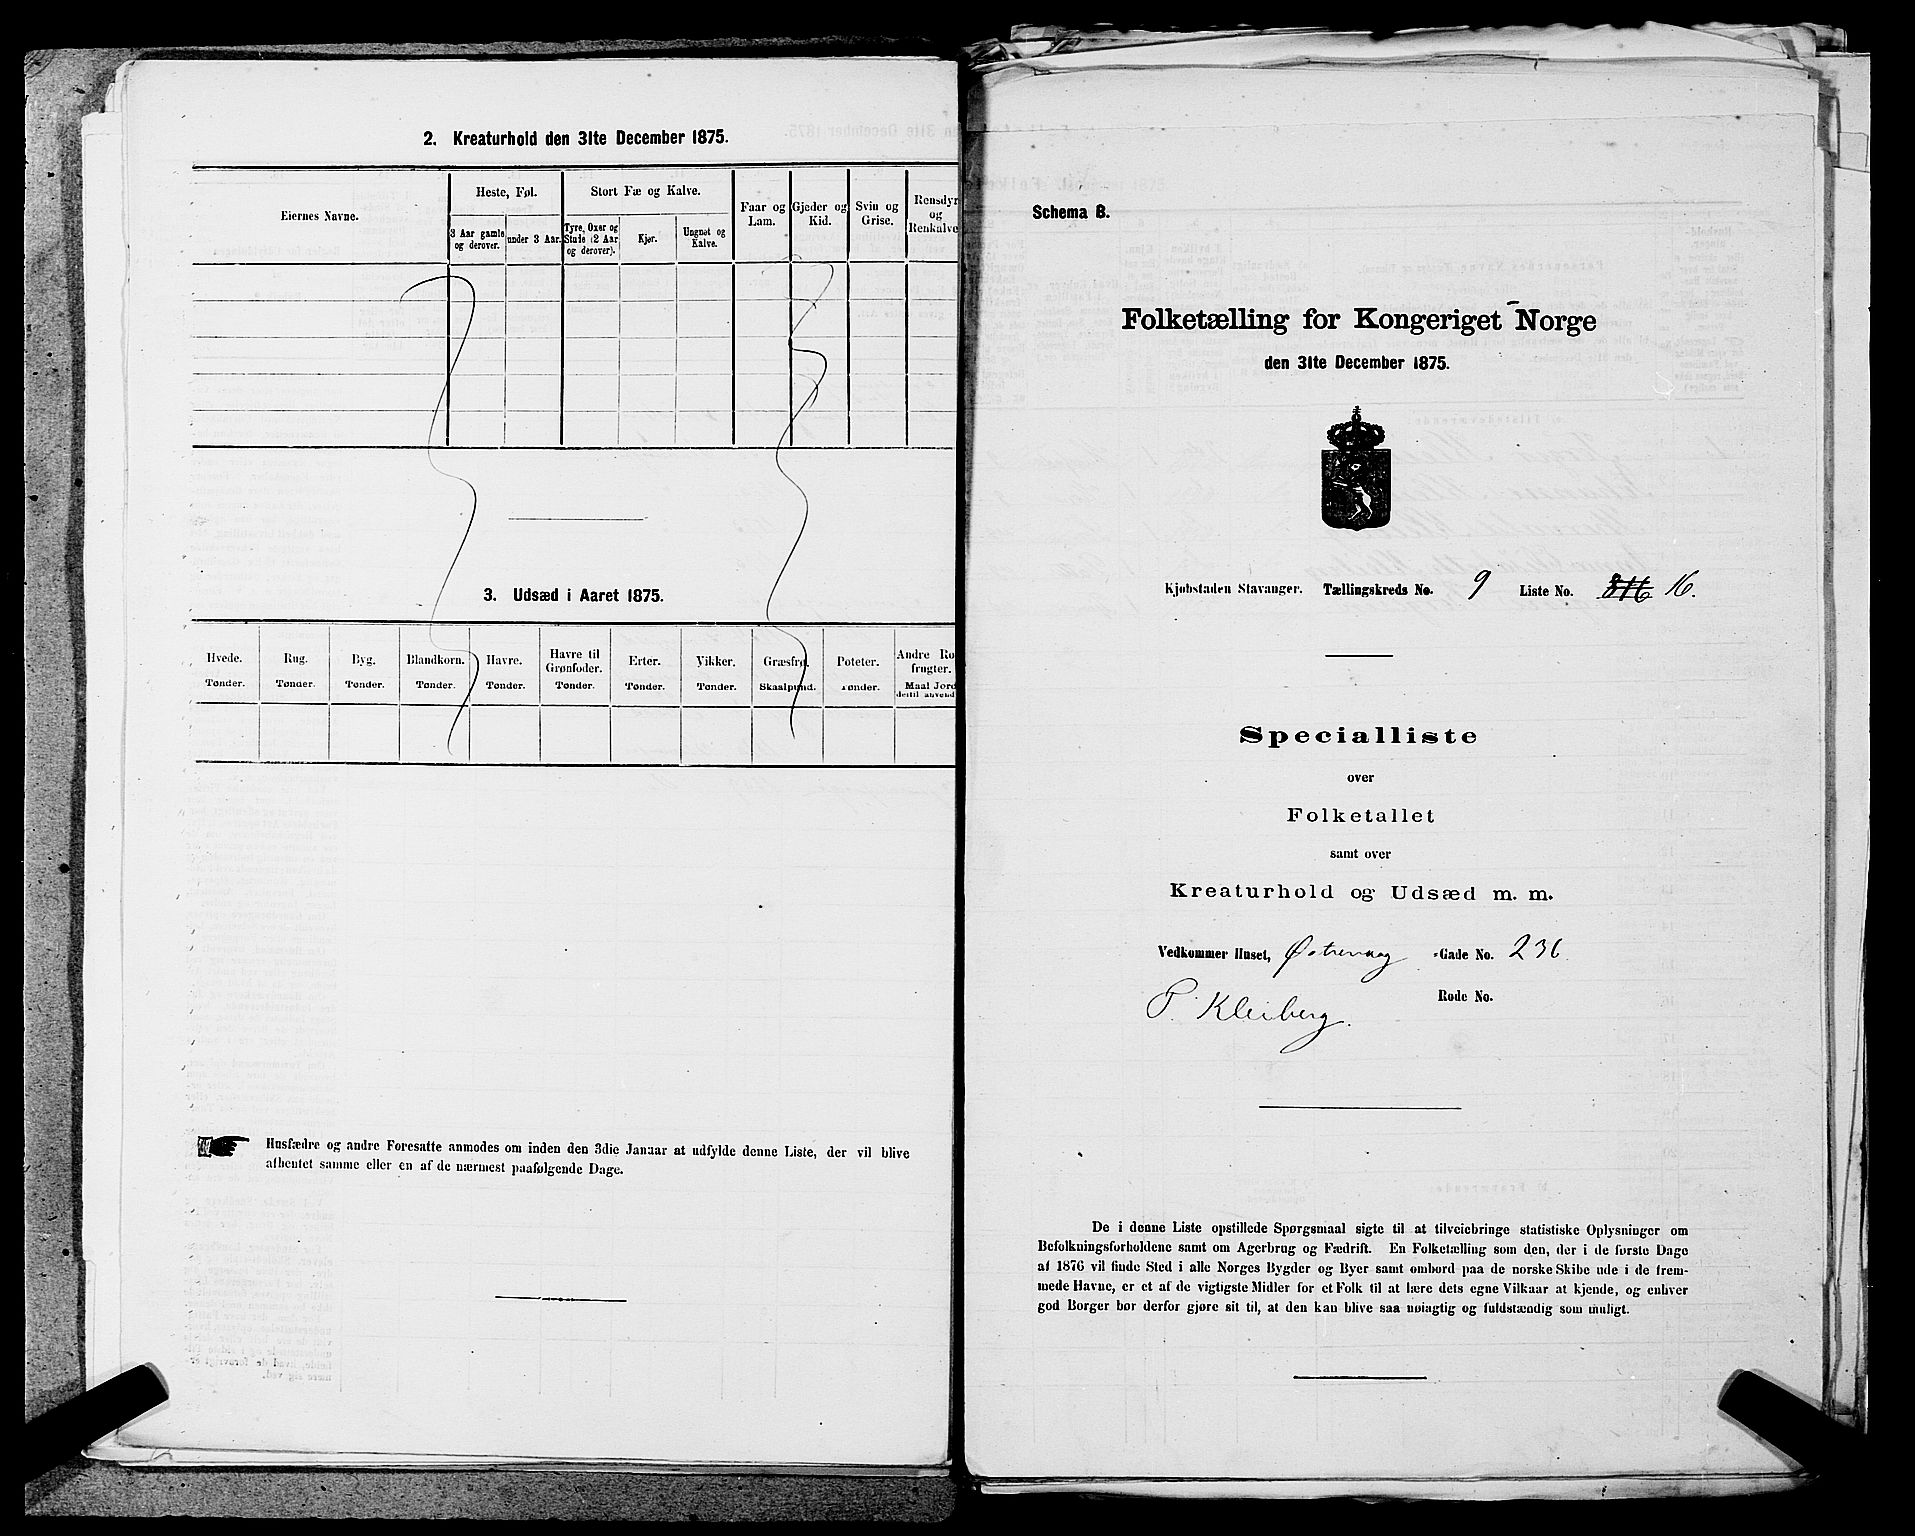 2. Kreaturhold den 31te December 1875.
Eiernes Navne.
Heste, Føl.
Stort Fæ og Kalve.
Faar og Lam.
Gjeder og Kid.
Svin og Grise.
Rensdyr og Renkalve
3 Aar gamle og derover.
under 3 Aar.
Tyre, Oxer og Stude (2 Aar og derover).
Kjør.
Ungnøt og Kalve.
3. Udsæd i Aaret 1875.
Hvede. Rug. Byg. Blandkorn. Havre. Havre til Grønfoder. Erter. Vikker. Græsfrø. Poteter. Andre Ro- frugter.
Tønder. Tønder. Tønder. Tønder. Tønder. Tønder. Tønder. Tønder. Skaalpund. Tønder. Maal Jord dertil anvend
Husfædre og andre Foresatte anmodes om inden den 3die Januar at udfylde denne Liste, der vil blive
afhentet samme eller en af de nærmest paafølgende Dage.
Schema B.
Folketælling for Kongeriget Norge
den 31te December 1875.
Kjøbstaden Stavanger. Tællingskreds No. 9 Liste No. 16.
Specialliste
over
Folketallet
samt over
Kreaturhold og Udsæd m. m.
Vedkommer Huset, Østervaag Gade No. 236
Rode No.
P. Kleiberg.
De i denne Liste opstillede Spørgsmaal sigte til at tilveiebringe statistiske Oplysninger om
Befolkningsforholdene samt om Agerbrug og Fædrift. En Folketælling som den, der i de første Dage
af 1876 vil finde Sted i alle Norges Bygder og Byer samt ombord paa de norske Skibe ude i de frem-
mede Havne, er et af de vigtigste Midler for et Folk til at lære dets egne Vilkaar at kjende, og enhver
god Borger bør derfor gjøre sit til, at den kan blive saa nøiagtig og fuldstændig som muligt.